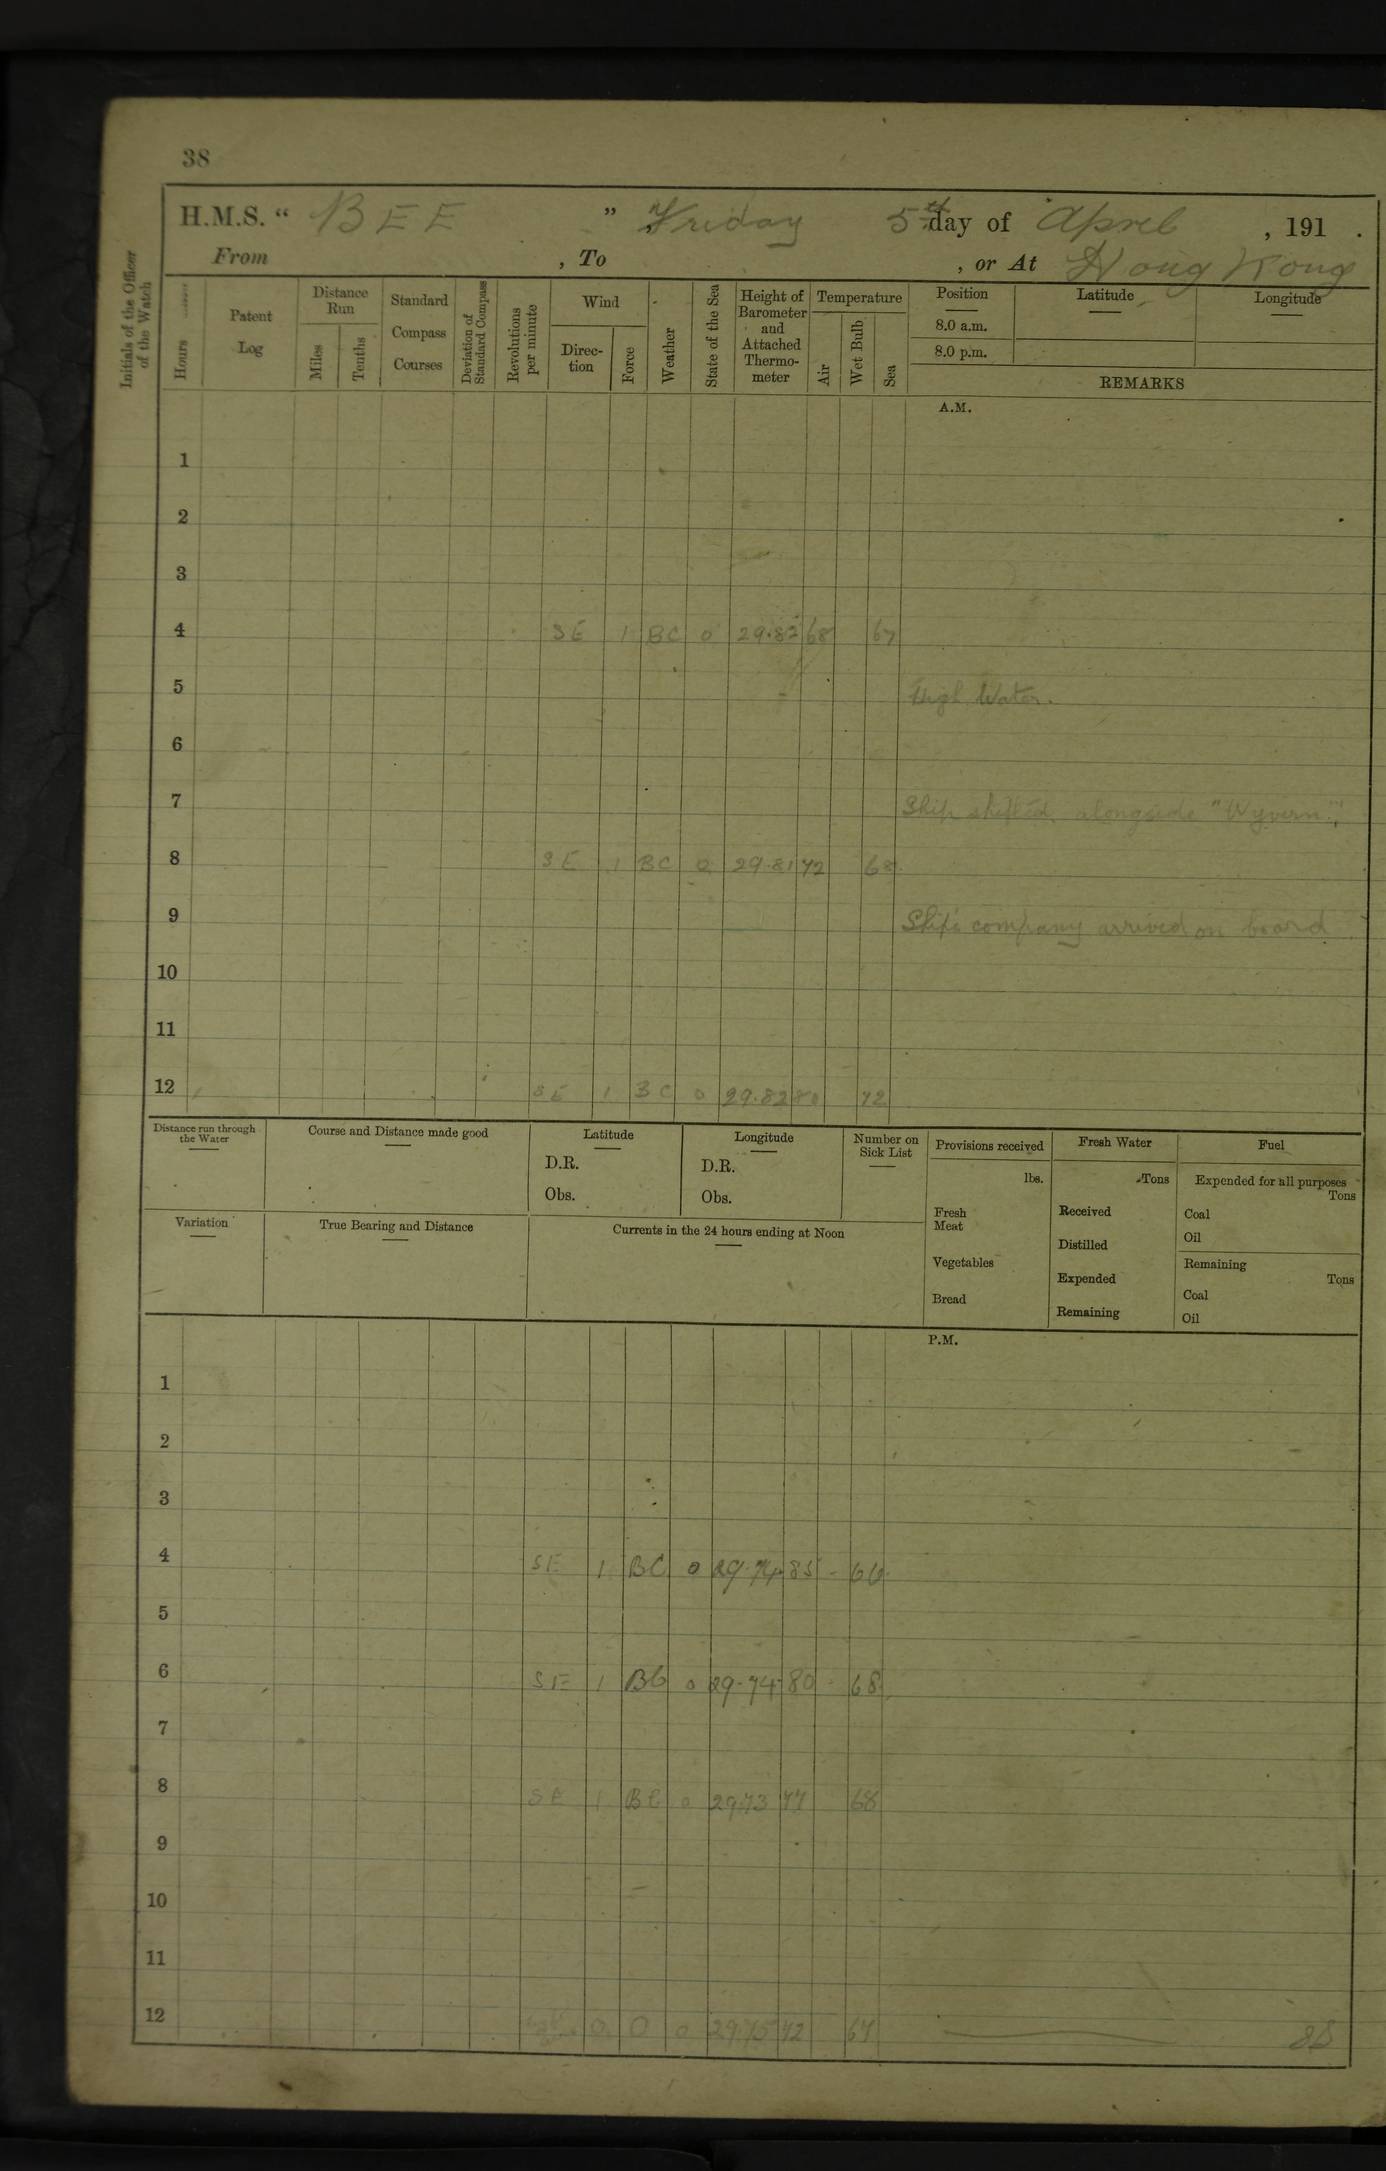 38
H.M.S. “ BEE ” Friday 5th day of April , 191 .
From , To , or At Hong Kong
Initials of the Officer of the Watch
Hours
Patent Log
Distance Run
Miles
Tenths
Standard Compass Courses
Deviation of Standard Compass
Revolutions per minute
Wind
Direc-tion
Force
Weather
State of the Sea
Height of Barometer and Attached Thermo-meter
Temperature
Air
Wet Bulb
Sea
Position Latitude Longitude
8.0 a.m.
8.0 p.m.
REMARKS
A.M.
1
2
3
4 SE 1 BC 0 29.82 68 67
5 High Water.
6
7 Ship shifted alongside "Wyvern"
8 SE 1 BC 0 29.81 72 68
9 Ship's company arrived on board
10
11
12 SE 1 BC 0 29.82 80 72
Distance run through the Water
Course and Distance made good
Latitude
D.R.
Obs.
Longitude
D.R.
Obs.
Number on Sick List
Provisions received
lbs.
Fresh Meat
Vegetables
Bread
Fresh Water
Tons
Received
Distilled
Expended
Remaining
Fuel
Expended for all purposes
Tons
Coal
Oil
Remaining
Tons
Coal
Oil
Variation
True Bearing and Distance
Currents in the 24 hours ending at Noon
P.M.
1
2
3
4 SE 1 BC 0 29.74 85 - 66
5
6 SE 1 BC 0 29.74 80 - 68
7
8 SE 1 BC 0 29.73 77 68
9
10
11
12 0 0 0 29.75 72 67